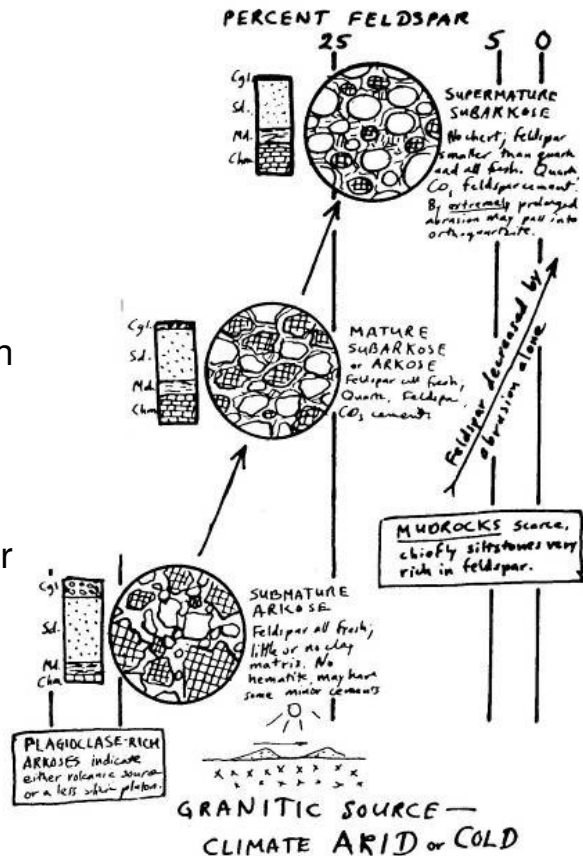 PERCENT FELDSPAR
25 5 0
Cgl.
Sd.
Md.
Chm.
SUPERMATURE
SUBARKOSE
No chert; feldspar
smaller than quartz
and all fresh. Quartz,
CO3, feldspar cement.
By extremely prolonged
abrasion may pass into
orthoquartzite.
n
Cgl.
Sd.
Md.
Chm.
MATURE
SUBARKOSE
or ARKOSE
Feldspar all fresh,
Quartz, Feldspar,
CO3 cements
Feldspar decreased by
abrasion alone
MUDROCKS scarce,
chiefly siltstones very
rich in feldspar.
r
Cgl
Sd.
Md.
Chm.
SUBMATURE
ARKOSE
Feldspar all fresh;
little or no clay
matrix. No
hematite, may have
some minor cements
PLAGIOCLASE-RICH
ARKOSES indicate
either volcanic source
or a less pluton.
GRANITIC SOURCE—
CLIMATE ARID or COLD